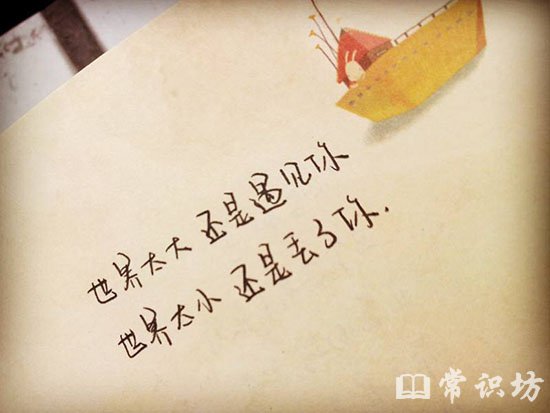 世界太大 还是遇见你
世界太小 还是丢了你.
常识坊